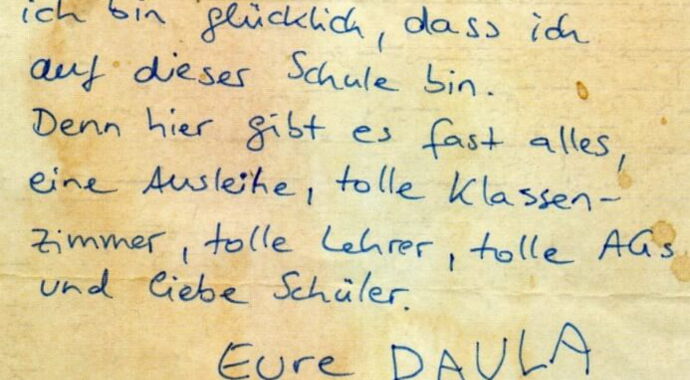 ich bin glücklich, dass ich
auf dieser Schule bin.
Denn hier gibt es fast alles,
eine Ausleihe, tolle Klassen-
zimmer, tolle Lehrer, tolle AGs
und liebe Schüler.
Eure DAULA